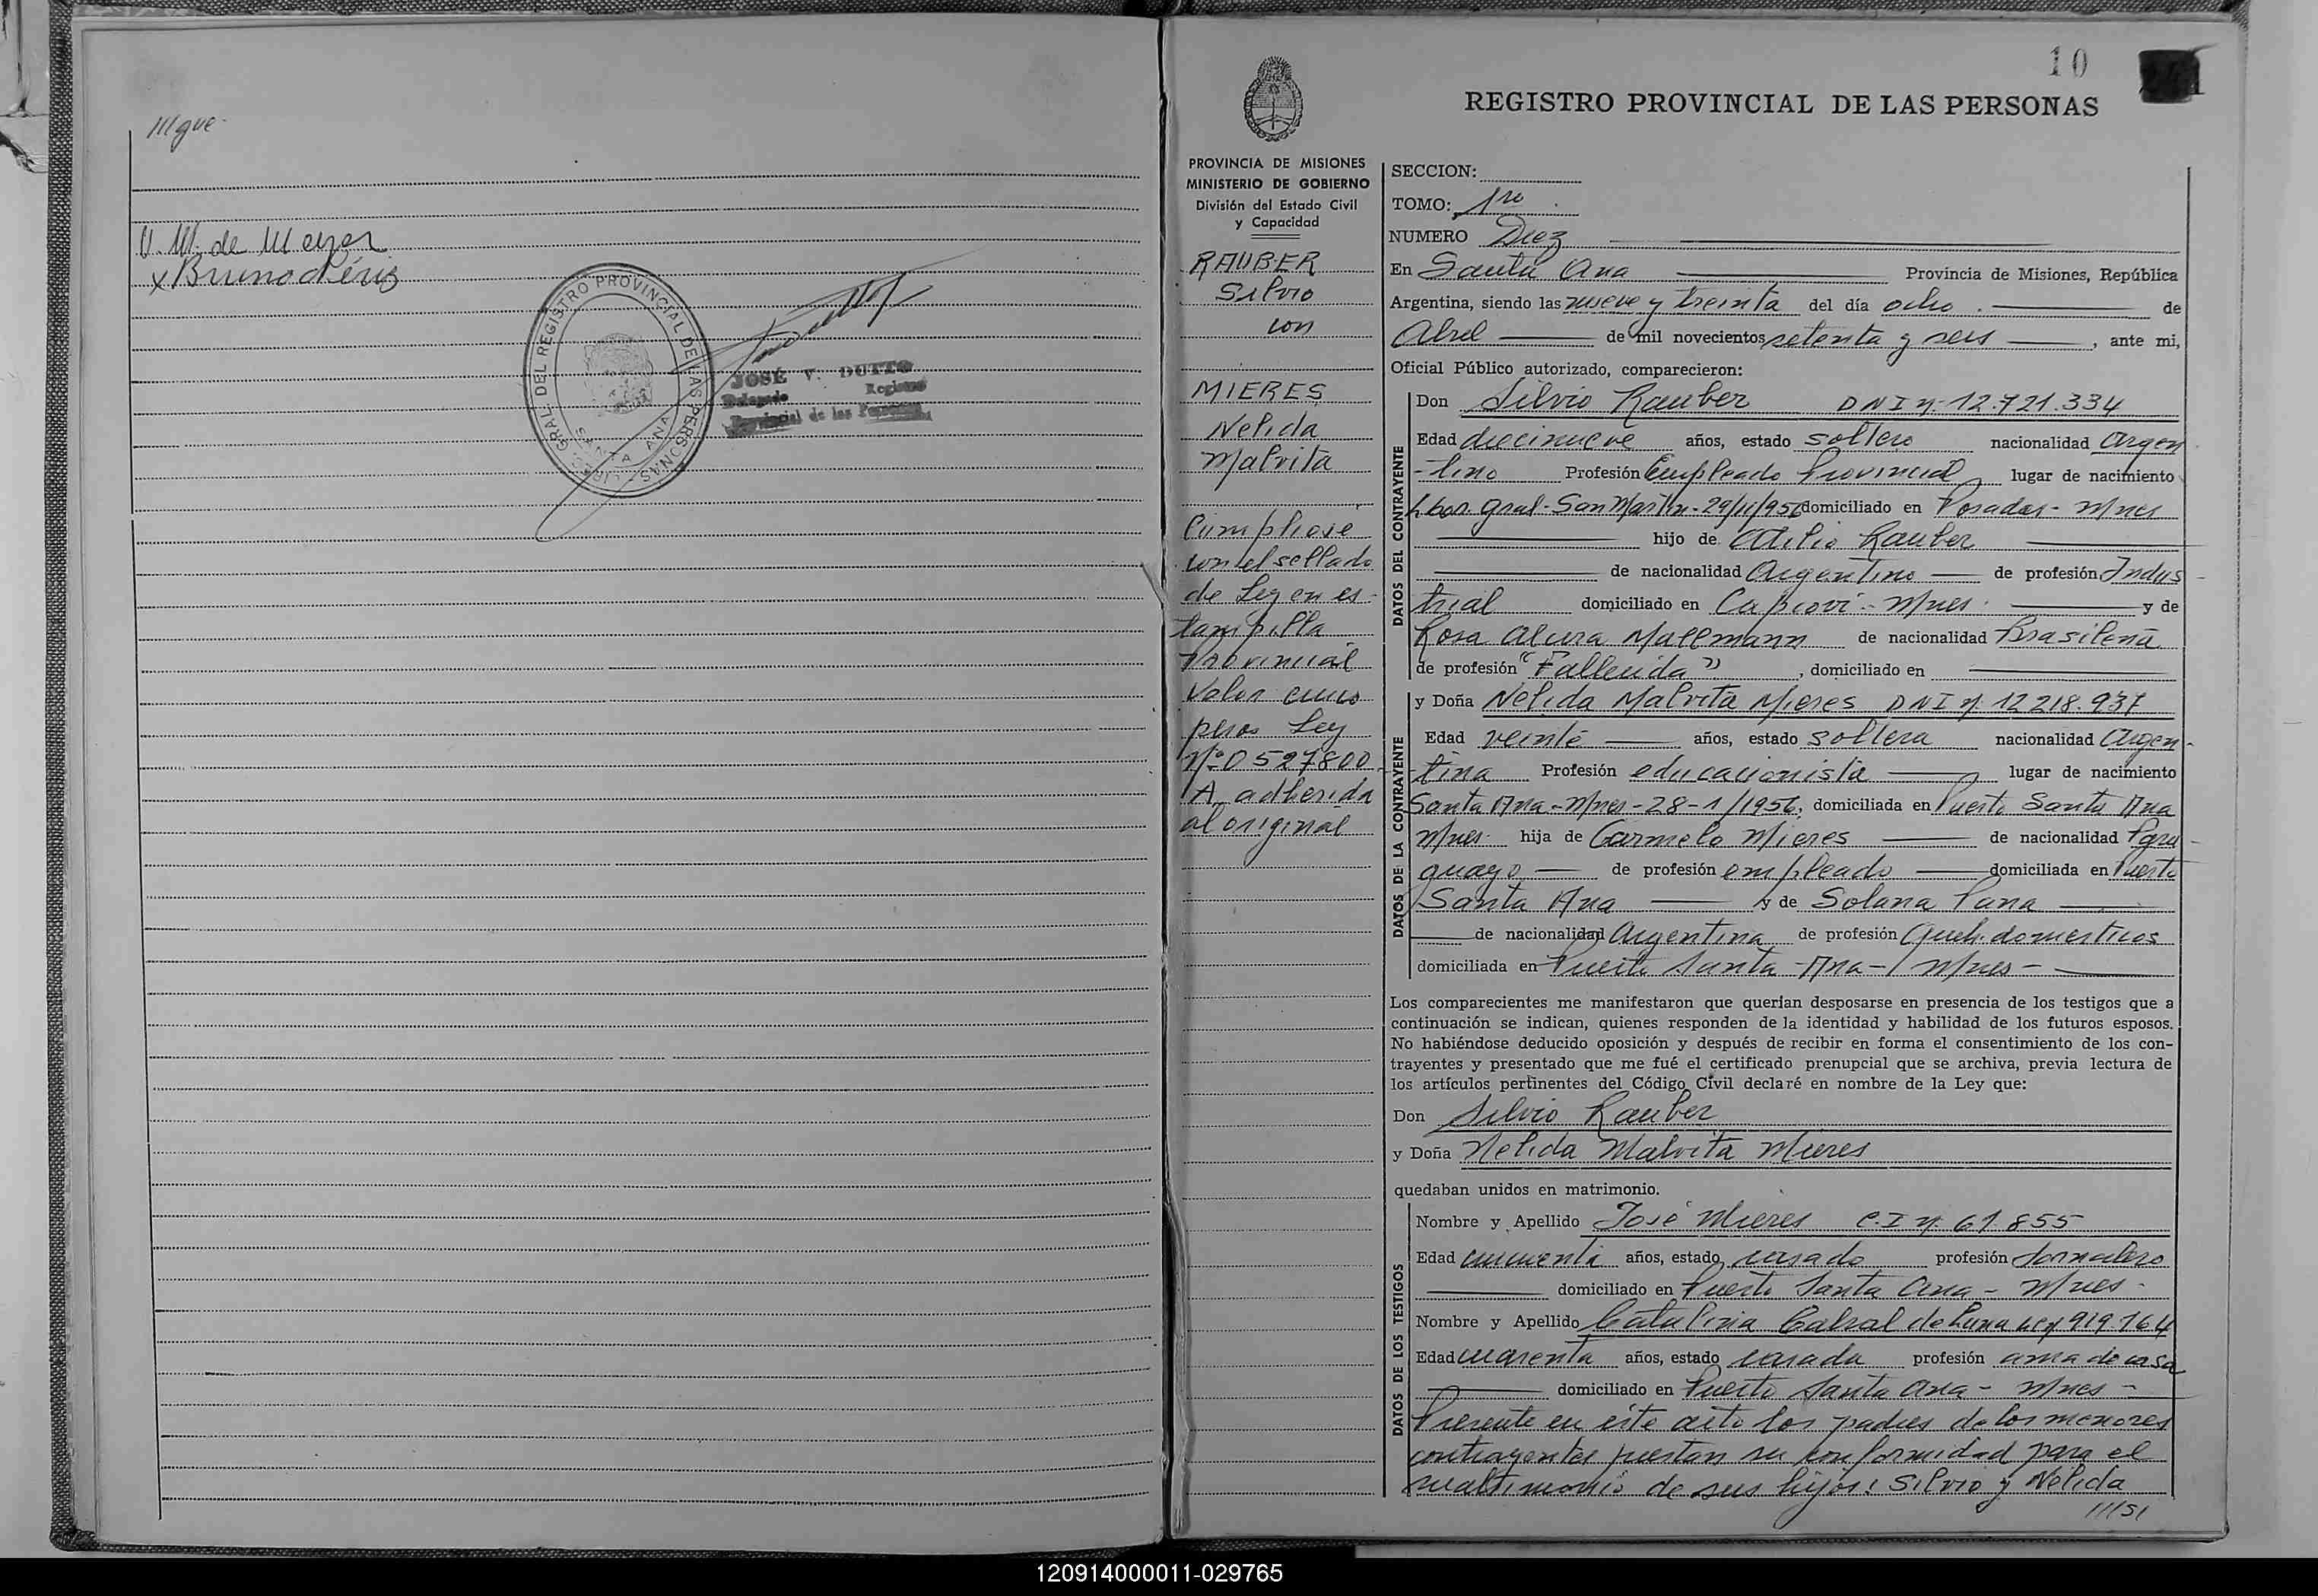 ///gue-
V. M. de Meyer
x Bruno
GRAL. DEL REGISTRO PROVINCIAL DE LAS PERSONAS
SANTA ANA
JOSÉ V. DUTTO
Delegado Registro
Provincial de las Personas
10
REGISTRO PROVINCIAL DE LAS PERSONAS
PROVINCIA DE MISIONES
MINISTERIO DE GOBIERNO
División del Estado Civil
y Capacidad
RAUBER
Silvio
con
MIERES
Nelida
Malvita
Cumpliose
con el sellado
de Ley en es-
tampilla
Provincial
Valor cinco
pesos Ley
Nº 0527800
A adherida
al original
SECCION:
TOMO: 1ro
NUMERO Diez
En Santa Ana Provincia de Misiones, República
Argentina, siendo las nueve y treinta del día ocho de
Abril de mil novecientos setenta y seis, ante mi,
Oficial Público autorizado, comparecieron:
DATOS DEL CONTRAYENTE
Don Silvio Rauber DNI Nº 12.721.334
Edad diecinueve años, estado soltero nacionalidad Argen
-tino Profesión Empleado Provincial lugar de nacimiento
Lbor. Gral. San Martín - 29/11/956 domiciliado en Posadas - Mnes
hijo de Atilio Rauber
de nacionalidad Argentino de profesión Indus-
trial domiciliado en Capioví - Mnes. y de
Rosa Alvira Mallmann de nacionalidad Brasileña
de profesión "Fallecida", domiciliado en
DATOS DE LA CONTRAYENTE
y Doña Nelida Malvita Mieres DNI Nº 12.218.937
Edad veinte años, estado soltera nacionalidad Argen-
tina Profesión educacionista lugar de nacimiento
Santa Ana - Mnes - 28-1/1956, domiciliada en Puerto Santa Ana
Mnes. hija de Carmelo Mieres de nacionalidad Para-
guayo de profesión empleado domiciliada en Puerto
Santa Ana y de Solana
de nacionalidad Argentina de profesión Queh. domesticos
domiciliada en Puerto Santa Ana - Mnes -
Los comparecientes me manifestaron que querían desposarse en presencia de los testigos que a
continuación se indican, quienes responden de la identidad y habilidad de los futuros esposos.
No habiéndose deducido oposición y después de recibir en forma el consentimiento de los con-
trayentes y presentado que me fué el certificado prenupcial que se archiva, previa lectura de
los artículos pertinentes del Código Civil declaré en nombre de la Ley que:
Don Silvio Rauber
y Doña Nelida Malvita Mieres
quedaban unidos en matrimonio.
DATOS DE LOS TESTIGOS
Nombre y Apellido José Mieres C.I Nº 61.855
Edad cincuenta años, estado casado profesión Jornalero
domiciliado en Puerto Santa Ana - Mnes -
Nombre y Apellido Catalina Cabral de Luna 919.164
Edad cuarenta años, estado casada profesión ama de casa
domiciliado en Puerto Santa Ana - Mnes -
Presente en este acto los padres de los menores
contrayentes prestan su conformidad para el
matrimonio de sus hijos: Silvio y Nelida
///si
120914000011-029765